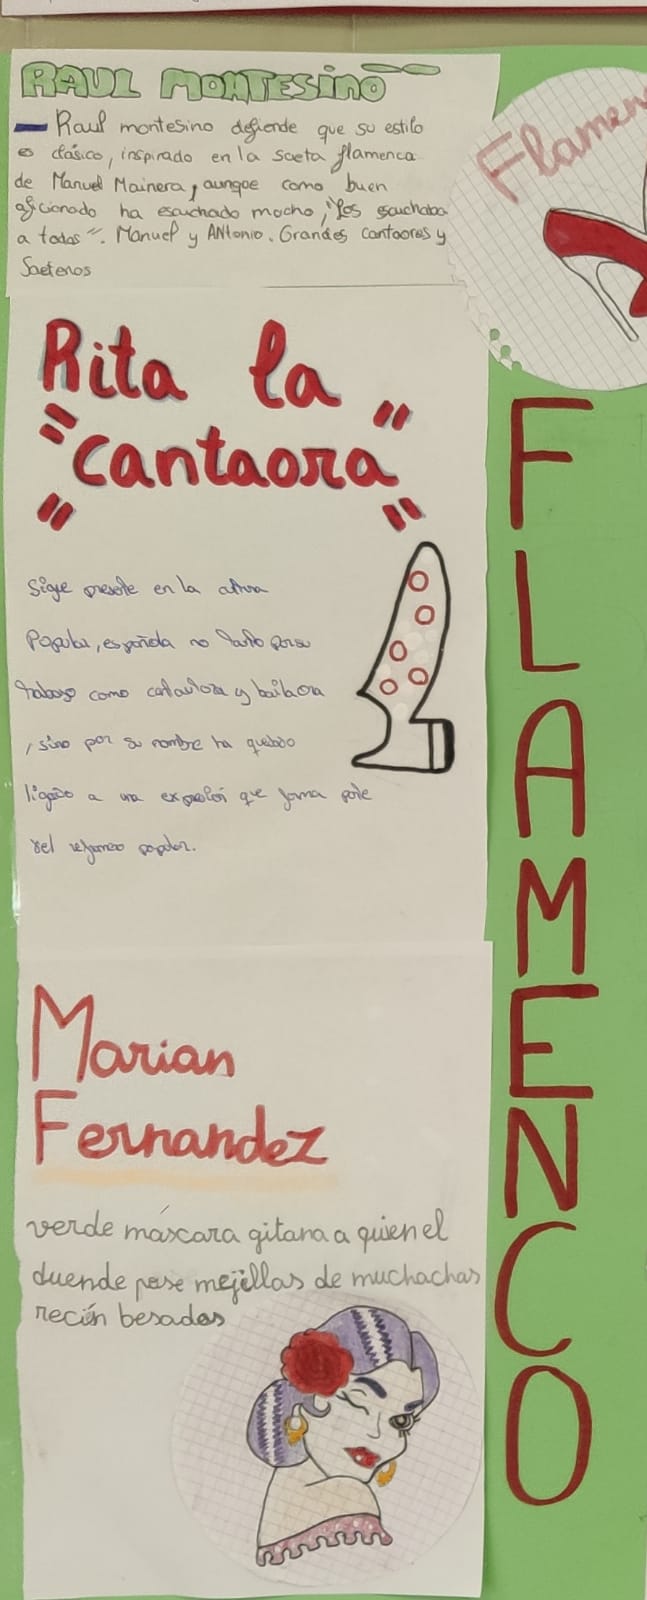 RAUL MONTESINO
Raul montesino defiende que su estilo
es clásico, inspirado en la saeta flamenca
de Manuel Mainera, aunqoe como buen
aficionado ha escuchado mocho, "Los escuchaba
a todas". Manuel y ANtonio. Grandes cantaores y
Saeteros
Flamen
Rita la
"cantaora"
Sigue presente en la
Popular, española no tanto por su
trabajo como cantaora y bailaora
, sino por su nombre ha quedado
ligado a una expresión que forma parte
del refranero popular.
Marian
Fernandez
verde máscara gitana a quien el
duende pose mejillas de muchachas
recién besadas
FLAMENCO